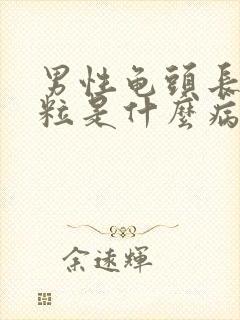 男性龟頭長
粒是什麼病
余遠輝